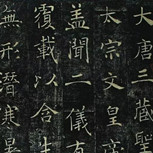 大唐三藏
太宗文皇
盖聞二儀有
覆載以含生
無形潛寒暑